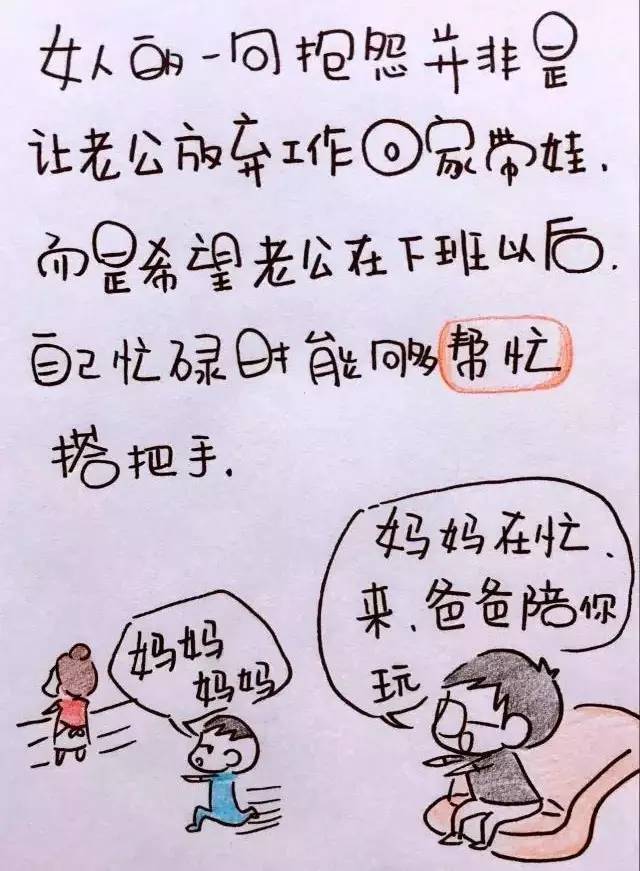 女人的一句抱怨并非是
让老公放弃工作回家带娃.
而是希望老公在下班以后.
自己忙碌时能够帮忙
搭把手.
妈妈在忙、
来、爸爸陪你
玩
妈妈
妈妈